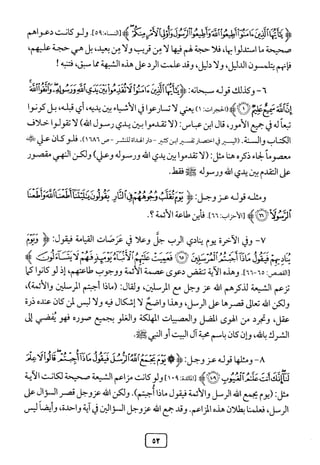 ﴿يَا أَيُّهَا الَّذِينَ آمَنُوا أَطِيعُوا اللَّهَ وَأَطِيعُوا الرَّسُولَ وَأُولِي الْأَمْرِ مِنكُمْ﴾ [النساء:٥٩]. ولو كانت دعواهم
صحيحة ما استدلوا بها، فلا حجة لهم فيها لا من قريب ولا من بعيد، بل هي حجة عليهم،
فإنهم يتلمسون الدليل، ولا دليل، وقد علمت الرد على هذه الشبهة مما سبق، فتنبه !
٦- وكذلك قوله سبحانه: ﴿يَا أَيُّهَا الَّذِينَ آمَنُوا لَا تُقَدِّمُوا بَيْنَ يَدَيِ اللَّهِ وَرَسُولِهِ وَاتَّقُوا اللَّهَ
إِنَّ اللَّهَ سَمِيعٌ عَلِيمٌ ﴿١﴾﴾ [الحجرات: ١] يعني لا تسارعوا في الأشياء بين يديه، أي قبله، بل كونوا
تبعاً له في جميع الأمور، قال ابن عباس: (لا تقدموا بين يدي رسول الله) لا تقولوا خلاف
الكتاب والسنة. (اليسير في اختصار تفسير ابن كثير - دار الهداة للنشر - ص ١٦٨٦). فلو كان علي
معصوماً لجاء ذكره هنا مثل: (لا تقدموا بين يدي الله ورسوله وعلي) ولكن النهي مقصور
على التقدم بين يدي الله ورسوله ﷺ فقط.
ومثله قوله عز وجل: ﴿يَوْمَ تُقَلَّبُ وُجُوهُهُمْ فِي النَّارِ يَقُولُونَ يَا لَيْتَنَا أَطَعْنَا اللَّهَ وَأَطَعْنَا
الرَّسُولَا ﴿٦٦﴾﴾ [الأحزاب: ٦٦]. فأين طاعة الأئمة ؟.
٧- وفي الآخرة يوم ينادي الرب جل وعلا في عرصات القيامة فيقول: ﴿وَيَوْمَ
يُنَادِيهِمْ فَيَقُولُ مَاذَا أَجَبْتُمُ الْمُرْسَلِينَ ﴿٦٥﴾ فَعَمِيَتْ عَلَيْهِمُ الْأَنبَاءُ يَوْمَئِذٍ فَهُمْ لَا يَتَسَاءَلُونَ ﴿٦٦﴾﴾
[القصص: ٦٥-٦٦]. وهذه الآية تنقض دعوى عصمة الأئمة ووجوب طاعتهم، إذ لو كانوا كما
تزعم الشيعة لذكرهم الله عز وجل مع المرسلين، ولقال: (ماذا أجبتم المرسلين والأئمة)،
ولكن الله تعالى قصرها على الرسل، وهذا واضح لا إشكال فيه ولا لبس لمن كان عنده ذرة
عقل، وتجرد من الهوى المضل والعصبيات المهلكة والغلو بجميع صوره فهو يُفضي إلى
الشرك بالله، وإن كان باسم محبة آل البيت أو النبي ﷺ.
٨- ومثلها قوله عز وجل: ﴿يَوْمَ يَجْمَعُ اللَّهُ الرُّسُلَ فَيَقُولُ مَاذَا أُجِبْتُمْ قَالُوا لَا عِلْمَ
لَنَا إِنَّكَ أَنتَ عَلَّامُ الْغُيُوبِ ﴿١٠٩﴾﴾ [المائدة: ١٠٩] ولو كانت مزاعم الشيعة صحيحة لكانت الآية
مثل: (يوم يجمع الله الرسل والأئمة فيقول ماذا أجبتم). ولكن الله عز وجل قصر السؤال على
الرسل، فعلمنا بطلان هذه المزاعم. وقد جمع الله عز وجل السؤالين في آية واحدة، وأيضاً ليس
٥٢